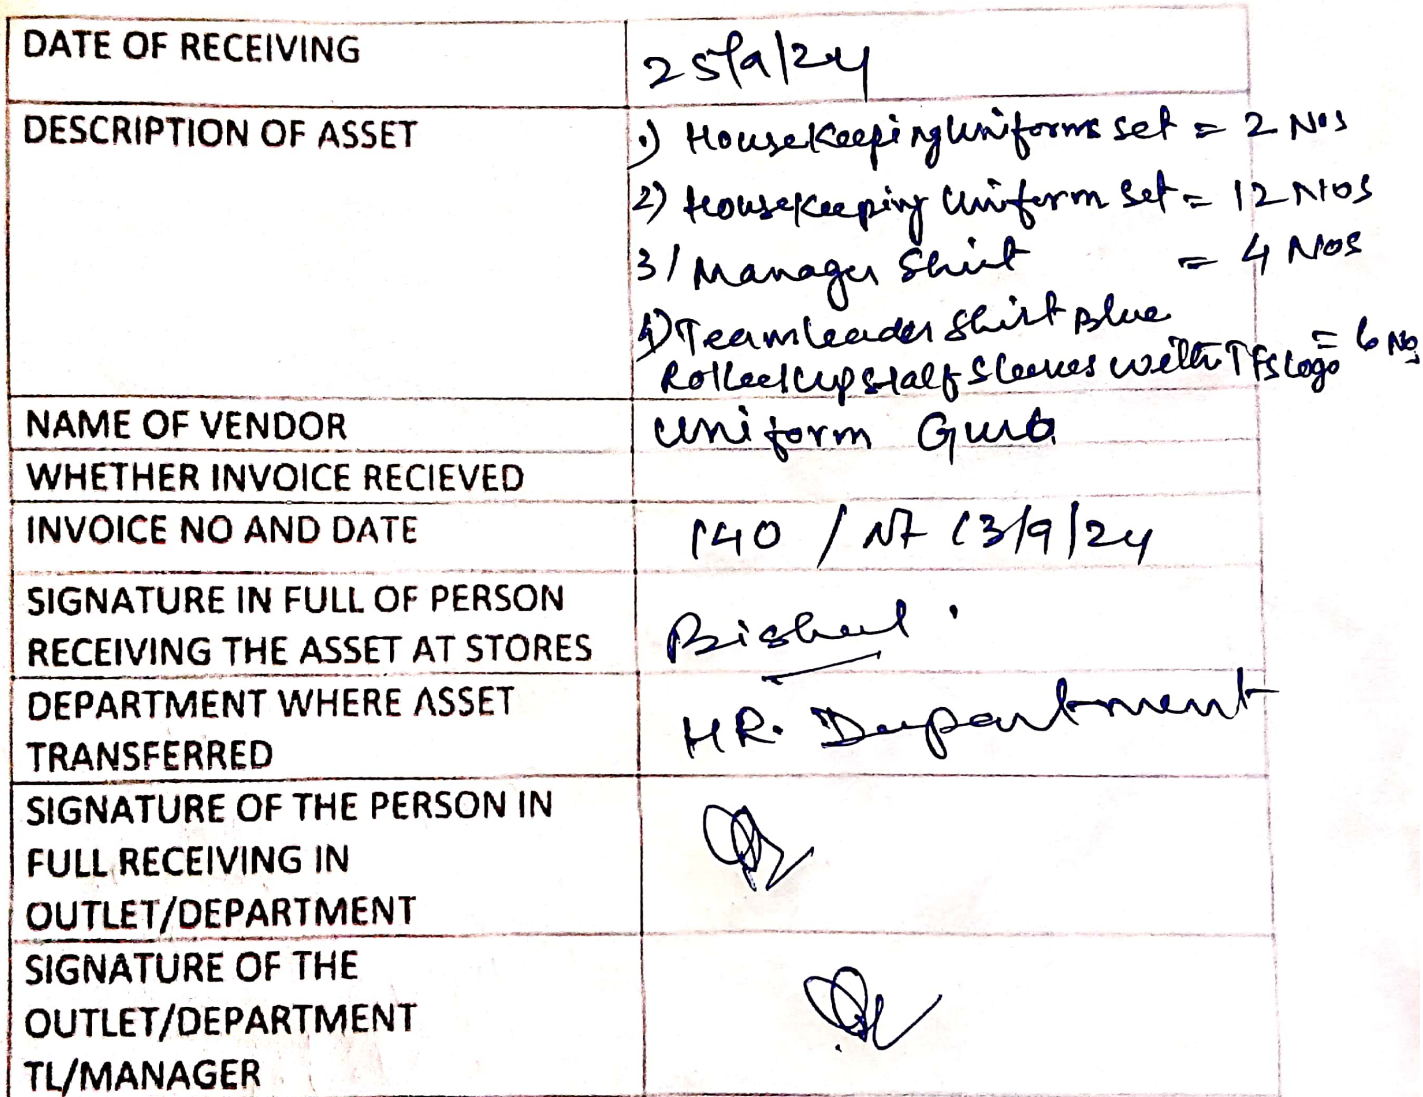 DATE OF RECEIVING 25/9/24
DESCRIPTION OF ASSET 1) Housekeeping uniforms set = 2 Nos
2) Housekeeping uniform set = 12 Nos
3/ Manager Shirt = 4 Nos
4) Team leader Shirt Blue
Rolled up Half Sleeves with TFS logo = 6 Nos
NAME OF VENDOR Uniform Guru
WHETHER INVOICE RECIEVED
INVOICE NO AND DATE 140 / 13/9/24
SIGNATURE IN FULL OF PERSON
RECEIVING THE ASSET AT STORES
DEPARTMENT WHERE ASSET HR. Department
TRANSFERRED
SIGNATURE OF THE PERSON IN
FULL RECEIVING IN
OUTLET/DEPARTMENT
SIGNATURE OF THE
OUTLET/DEPARTMENT
TL/MANAGER